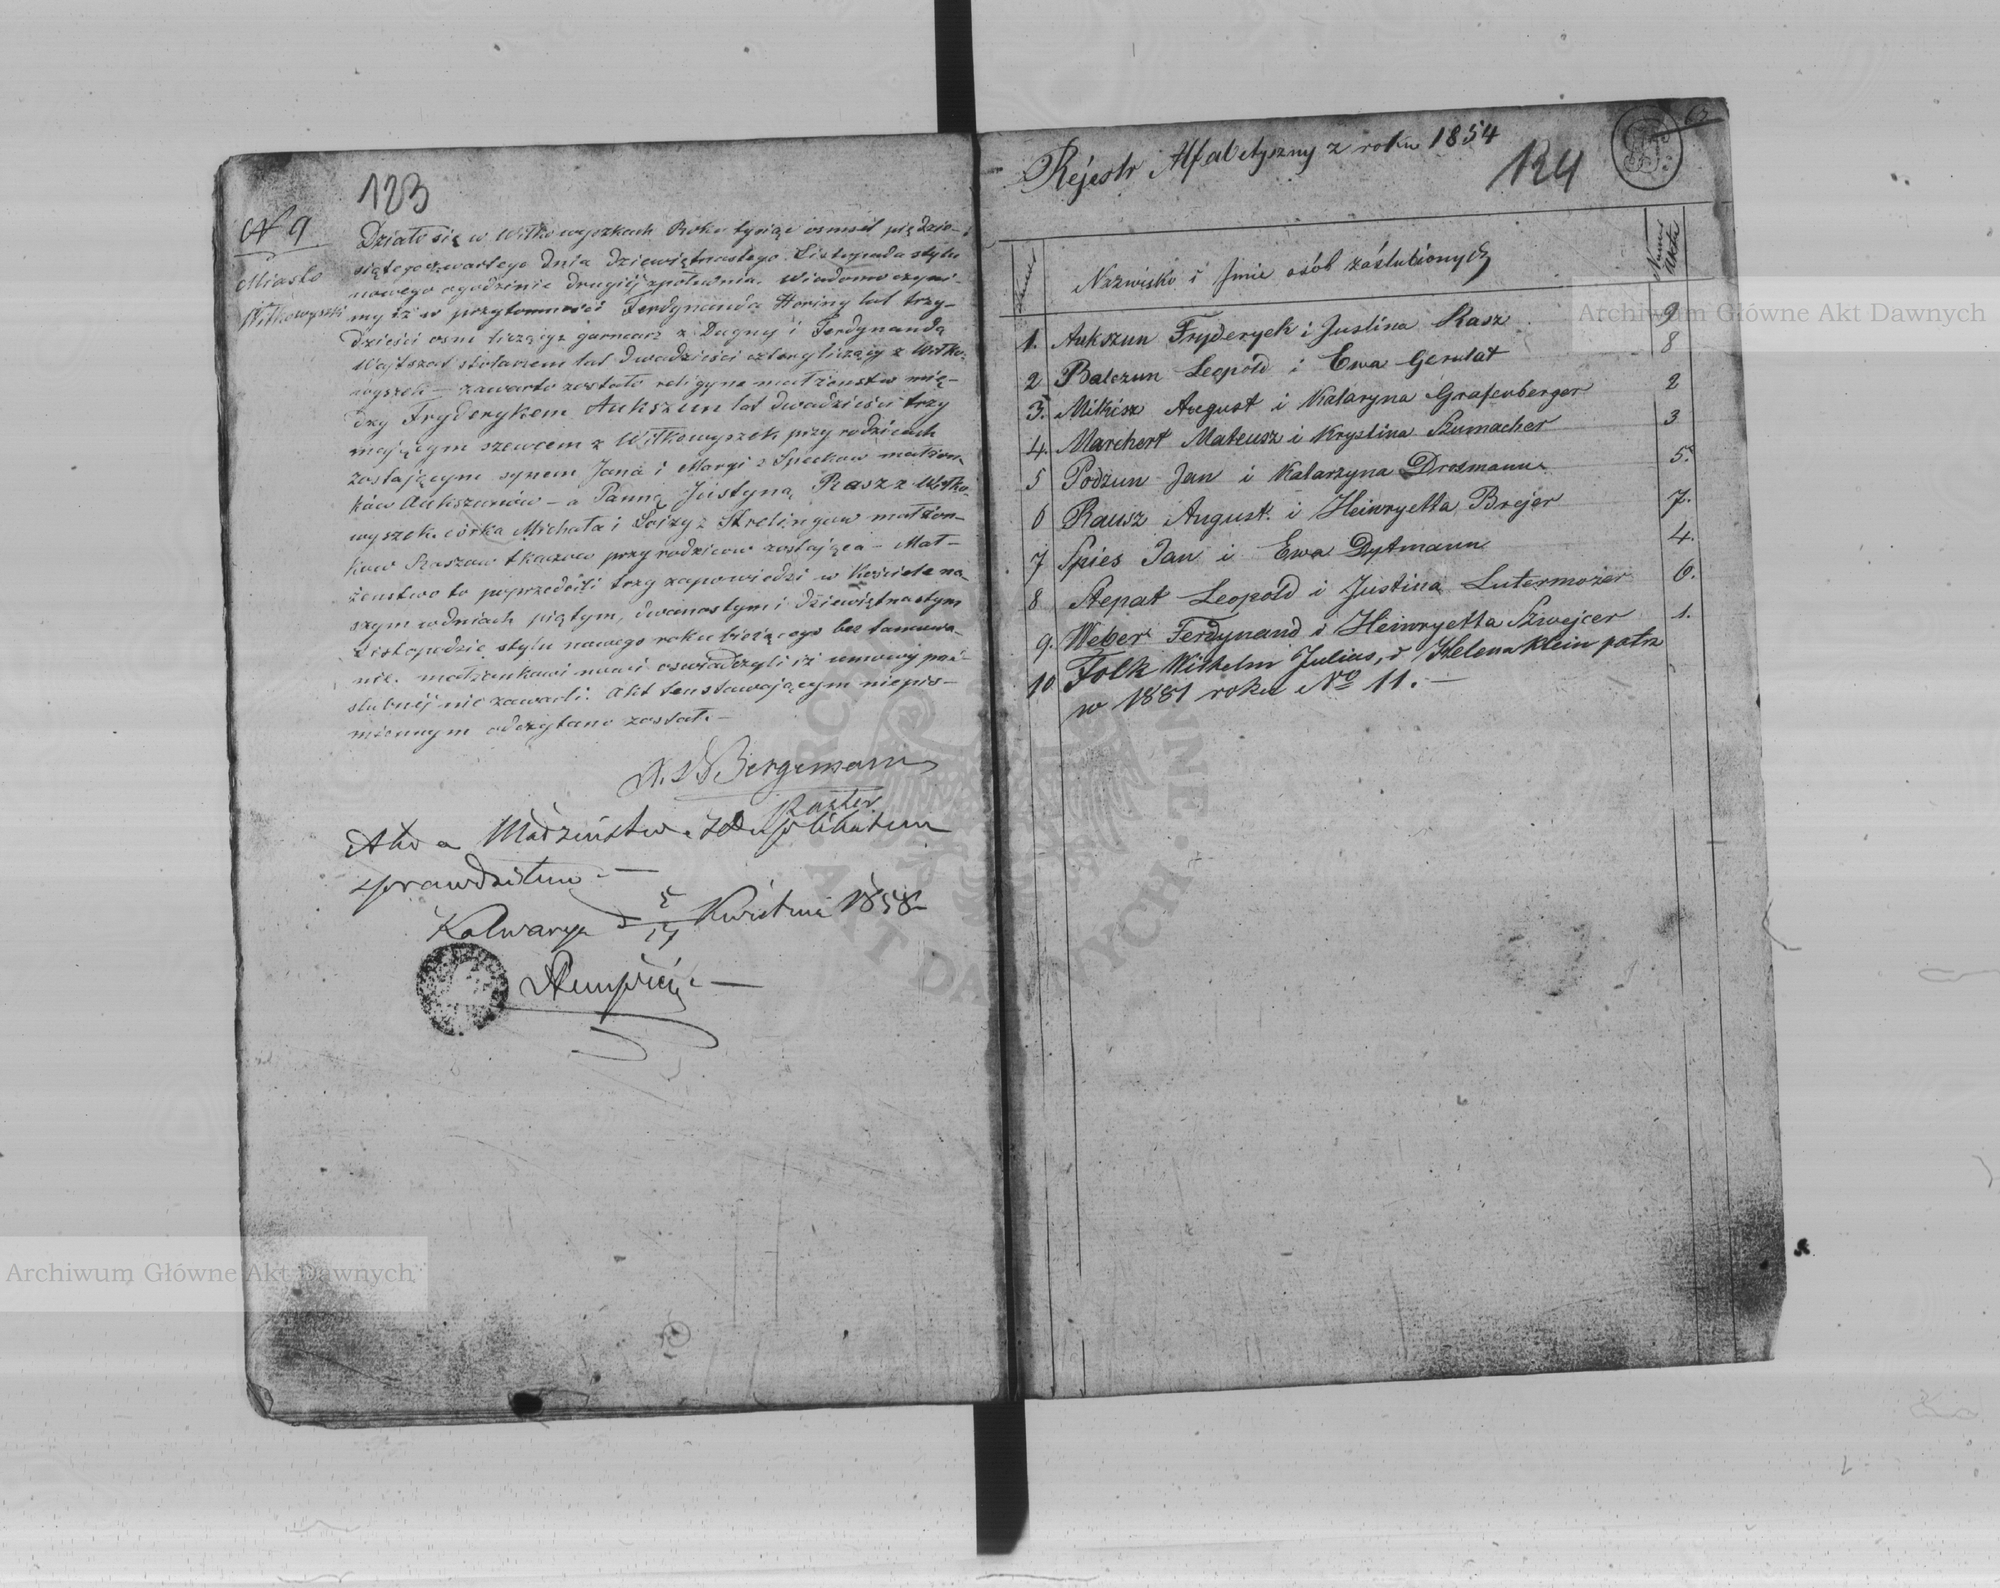 123
N 9
Miasto
Wiłkowyszki
Działo się w Wiłkowyszkach Roku tysiąc osmset piędzie-
siątego czwartego dnia dziewiętnastego Listopada stylu
nowego o godzinie drugiéj z południa. Wiadomo czyni-
my iż w przytomności Ferdynanda Horiny lat trzy-
dzieści osm liczący garncarz z Dugny i Ferdynanda
Wajtszat stolarzem lat dwadzieści cztery liczący z Wiłko-
wyszek – zawarte zostało religyne małżenstwo mię-
dzy Fryderykem Aukszun lat dwadzieści trzy
mającym szewcem z Wiłkowyszek przy rodzicach
zostającym synem Jana i Maryi z Speckow małżon-
ków Aukszunów – a Panną Justyną Rasz z Wiłko-
wyszek córka Michała i Loizy z Strelingow małżon-
kow Raszow tkaczow przy rodzicow zostająca – Mał-
żenstwo to poprzedziłi trzy zapowiedzi w Kościele na-
szym w dniach piątym, dwanostym i dziewiętnastym
Listopadzie stylu nowego roku bieżącego bez tamowa-
nie. małżonkowi nowi oswiadczyli iż umowy prze-
slubnéj nie zawarli. Akt ten stawającym niepis-
miennym odczytano został. –
Bergemann
Paster
Akta Małżeństw z Duplikatem
sprawdziłem. –
Kalwarya d 5/17 Kwietnia 1858
Réjestr Alfabetyszny z roku 1854
124
6
Numer
Nazwisko i Jmie osób zaślubionych
Numer
Aktu
1. Aukszun Fryderych i Justina Rasz 9
2 Balczun Leopold i Ewa Gerulat 8
3. Mikisz August i Kataryna Grafenberger 2
4. Marchert Mateusz i Krystina Szumacher 3
5 Podzun Jan i Katarzyna Drosmann 5.
6 Rausz August. i Heinryetta Brejer 7.
7 Spies Jan i Ewa Dytmann 4.
8 Stepat Leopold i Justina Lutermozer 6.
9. Weber Ferdynand i Heinryetta Szwejcer 1.
10 Folk Wilhelm Julius, i Helena Klein patrz
w 1881 roku No 11. –
Archiwum Główne Akt Dawnych
Archiwum Główne Akt Dawnych